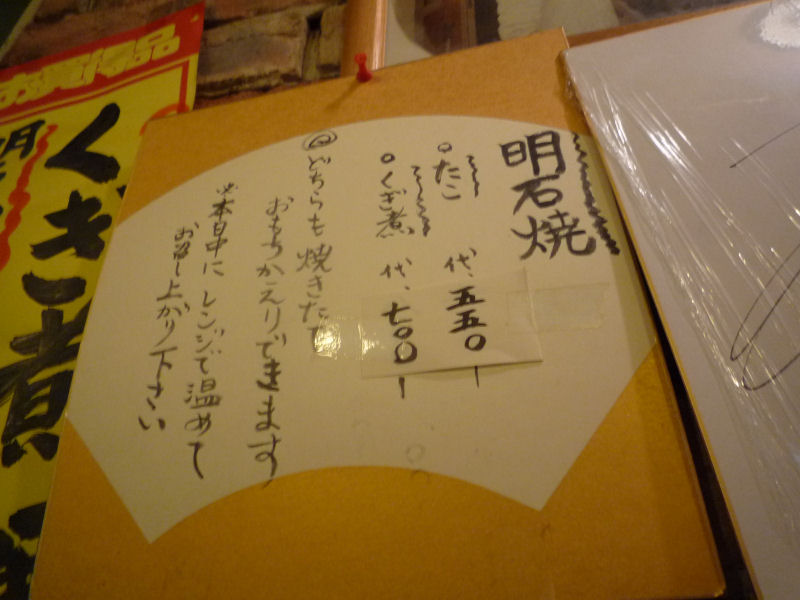 明石焼
○たこ 代、五五〇ー
○くぎ煮 代、七〇〇ー
◎どちらも焼きたて
おもちかえりできます
※本日中にレンジで温めて
お召し上がり下さい
お買得品
くぎ煮
明